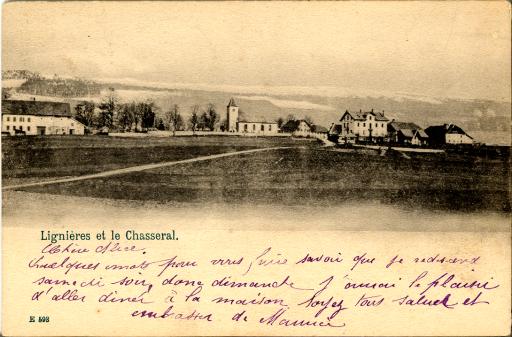 Lignières et le Chasseral.
Chère Alice.
Quelques mots pour vous faire savoir que je redescend
samedi soir, donc dimanche j'aurai le plaisir
d'aller diner à la maison soyez tous salués et
embrasser de Maurice
E 593